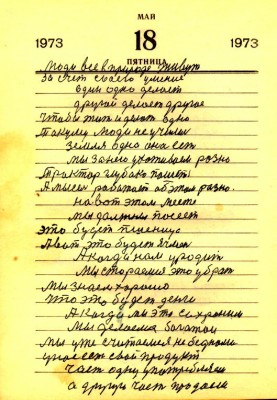 МАЙ
1973 18 1973
ПЯТНИЦА
Люди все в природе живут
За счет своего умение
один одно делает
другой делает другое
Чтобы жить и делать одно
Такому люди не учили
Земля одна она есть
мы за ней ухаживаем розно
Трактор глубоко пашет
А мы ей работаем об этом разно.
на вот этом месте
мы должны посеет
это будет пшеницу
А вот это будет ячмен
А когда нам уродит
Мы стараемся это убрат
Мы знаем хорошо
Что это будет денги
А когда мы это сохроним
Мы делаемся богатои
Мы уже считаемся не бедными
у нас есть свой продукт
Част одну употребляем
а другую част продаем